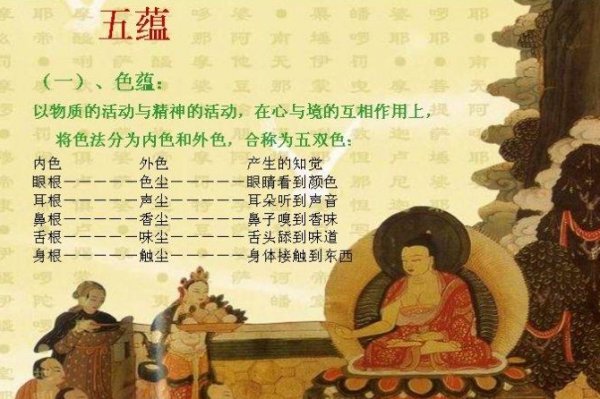 五蕴
（一）、色蕴：
以物质的活动与精神的活动，在心与境的互相作用上，
将色法分为内色和外色，合称为五双色：
内色 外色 产生的知觉
眼根－－－－－色尘－－－－－眼睛看到颜色
耳根－－－－－声尘－－－－－耳朵听到声音
鼻根－－－－－香尘－－－－－鼻子嗅到香味
舌根－－－－－味尘－－－－－舌头舔到味道
身根－－－－－触尘－－－－－身体接触到东西